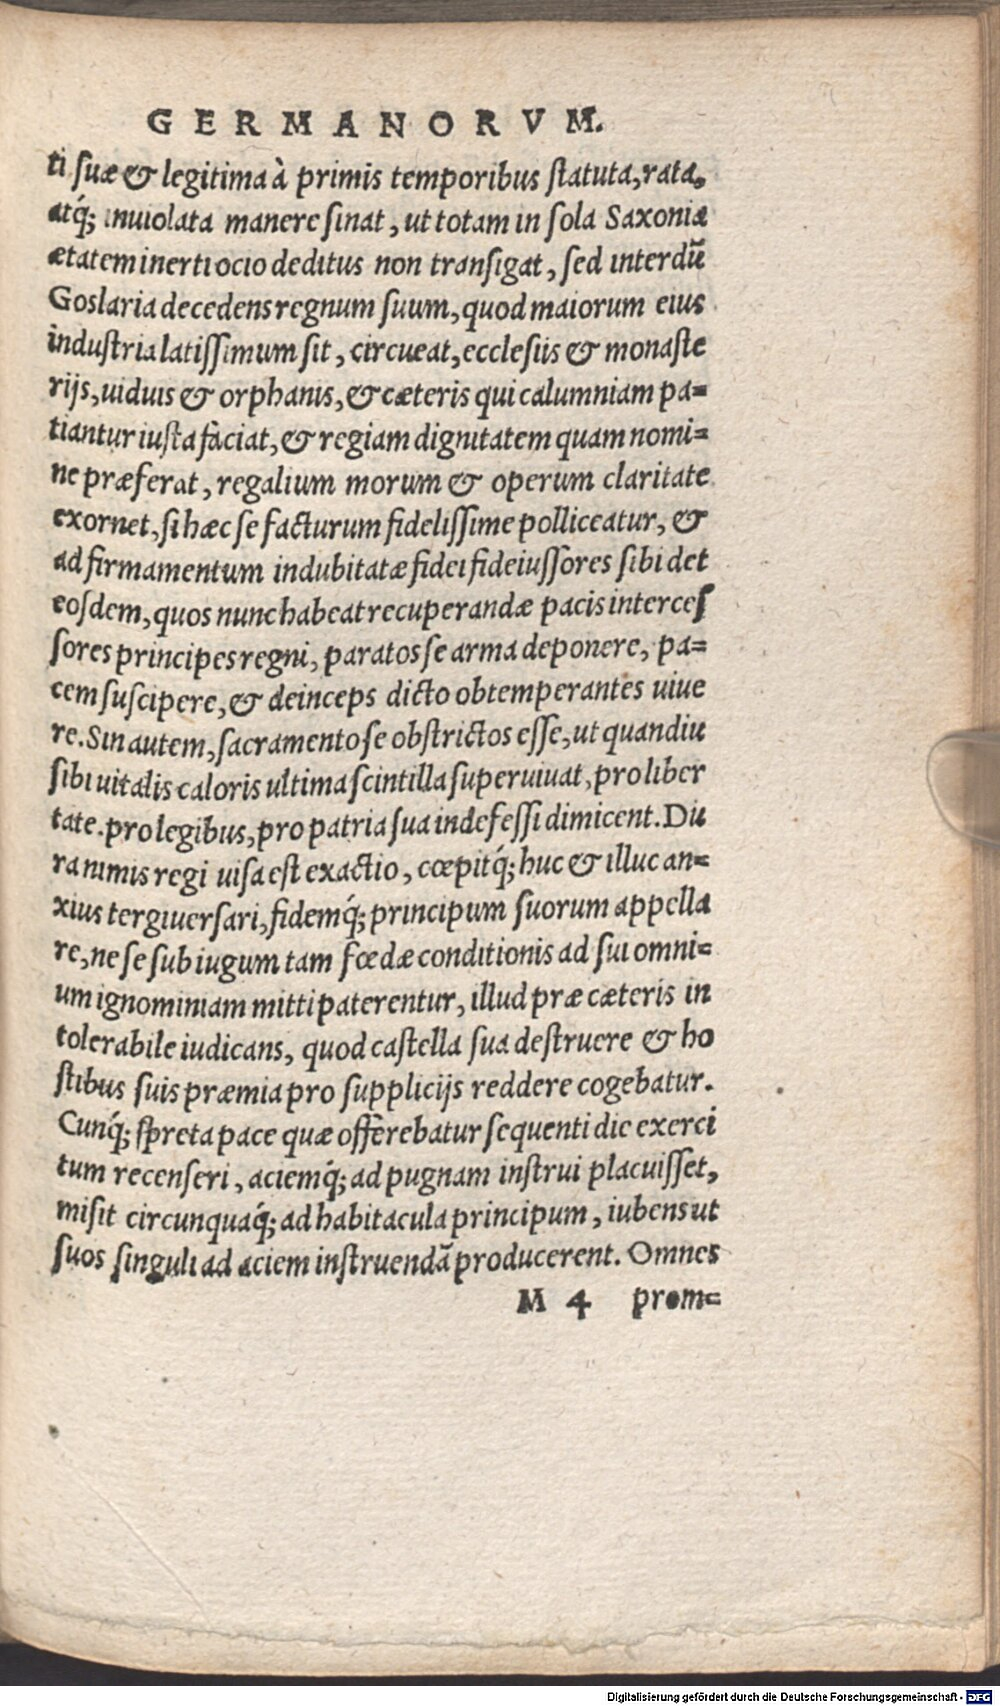 GERMANORVM.
ti ſuæ & legitima à primis temporibus ſtatuta, rata,
atq́; inuiolata manere ſinat, ut totam in ſola Saxoniæ
ætatem inerti ocio deditus non tranſigat, ſed interdũ
Goslaria decedens regnum ſuum, quod maiorum eius
induſtria latiſſimum ſit, circueat, eccleſiis & monaſte
rijs, uiduis & orphanis, & cæteris qui calumniam pa=
tiantur iuſta faciat, & regiam dignitatem quam nomi=
ne præferat, regalium morum & operum claritate
exornet, ſi hæc ſe facturum fideliſſime polliceatur, &
ad firmamentum indubitatæ fidei fideiuſſores ſibi det
eoſdem, quos nunc habeat recuperandæ pacis interceſ
ſores principes regni, paratos ſe arma deponere, pa=
cem ſuſcipere, & deinceps dicto obtemperantes uiue
re. Sin autem, ſacramento ſe obſtrictos eſſe, ut quandiu
ſibi uitalis caloris ultima ſcintilla ſuperuiuat, pro liber
tate. pro legibus, pro patria ſua indefeſſi dimicent. Du
ra nimis regi uiſa eſt exactio, cœpitq́; huc & illuc an=
xius tergiuerſari, fidemq́; principum ſuorum appella
re, ne ſe ſub iugum tam fœdæ conditionis ad ſui omni=
um ignominiam mitti paterentur, illud præ cæteris in
tolerabile iudicans, quod caſtella ſua deſtruere & ho
ſtibus ſuis præmia pro ſupplicijs reddere cogebatur.
Cunq́; ſpreta pace quæ offerebatur ſequenti die exerci
tum recenſeri, aciemq́; ad pugnam inſtrui placuiſſet,
miſit circunquaq́; ad habitacula principum, iubens ut
ſuos ſinguli ad aciem inſtruendã producerent. Omnes
M 4 prom=
Digitalisierung gefördert durch die Deutsche Forschungsgemeinschaft - DFG